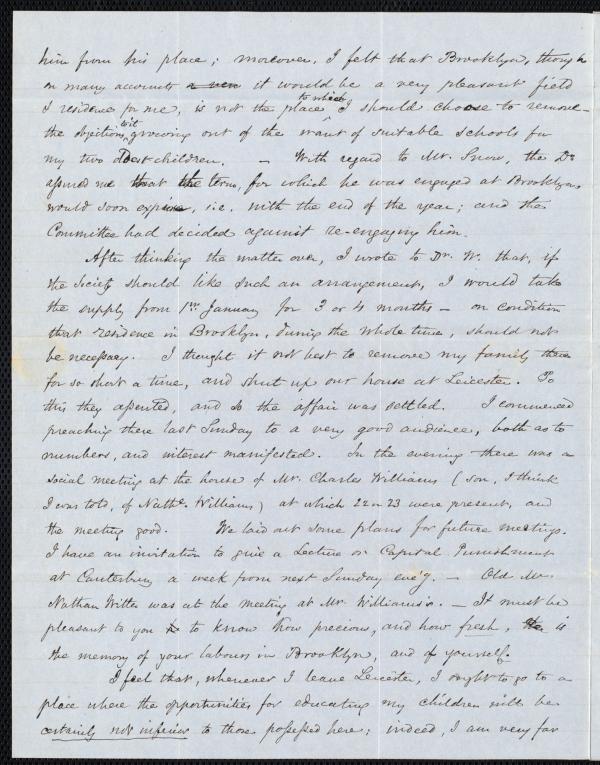 him from his place; moreover, I felt that Brooklyn, though
on many accounts it would be a very pleasant field
of residence for me, is not the place to which I should choose to remove—
the objections, viz growing out of the want of suitable schools for
my two oldest children. — With regard to Mr. Snow, the Dr
assured me that the term, for which he was engaged at Brooklyn,
would soon expire, i.e. with the end of the year; and the
Committee had decided against re-engaging him.
After thinking the matter over, I wrote to Dr. W. that, if
the Society should like such an arrangement, I would take
the supply from 1st January for 3 or 4 months — on condition
that residence in Brooklyn, during the whole time, should not
be necessary. I thought it not best to remove my family there
for so short a time, and shut up our house at Leicester. To
this they assented, and so the affair was settled. I commenced
preaching there last Sunday to a very good audience, both as to
numbers, and interest manifested. In the evening there was a
social meeting at the house of Mr. Charles Williams (son, I think
I was told, of Nathl. Williams) at which 22 or 23 were present, and
the meeting good. We laid out some plans for future meetings.
I have an invitation to give a Lecture on Capital Punishment
at Canterbury a week from next Sunday eve'g. — Old Mr.
Nathan Witter was at the meeting at Mr. Williams's. — It must be
pleasant to you to know how precious, and how fresh, is
the memory of your labours in Brooklyn, and of yourself.
I feel that, whenever I leave Leicester, I ought to go to a
place where the opportunities for educating my children will be
certainly not inferior to those possessed here; indeed, I am very far